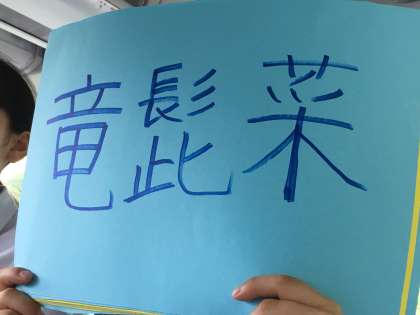 竜髭菜